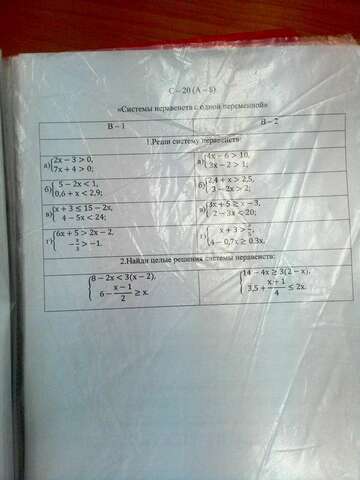 С – 20 (А – 8)
«Системы неравенств с одной переменной»
В – 1
В – 2
1.Реши систему неравенств:
а) {2x − 3 > 0,
7x + 4 > 0;
а) {4x − 6 > 10,
3x − 2 > 1;
б) {5 − 2x < 1,
0,6 + x < 2,9;
б) {2,4 + x > 2,5,
3 − 2x > 2;
в) {x + 3 ≤ 15 − 2x,
4 − 5x < 24;
в) {3x + 5 ≥ x − 3,
2 − 3x < 20;
г) {6x + 5 > 2x − 2,
−x/3 > −1.
г) {x + 3 >
4 − 0,7x ≥ 0,3x.
2.Найди целые решения системы неравенств:
{8 − 2x < 3(x − 2),
6 − (x − 1)/2 ≥ x.
{14 − 4x ≥ 3(2 − x),
3,5 + (x + 1)/4 ≤ 2x.